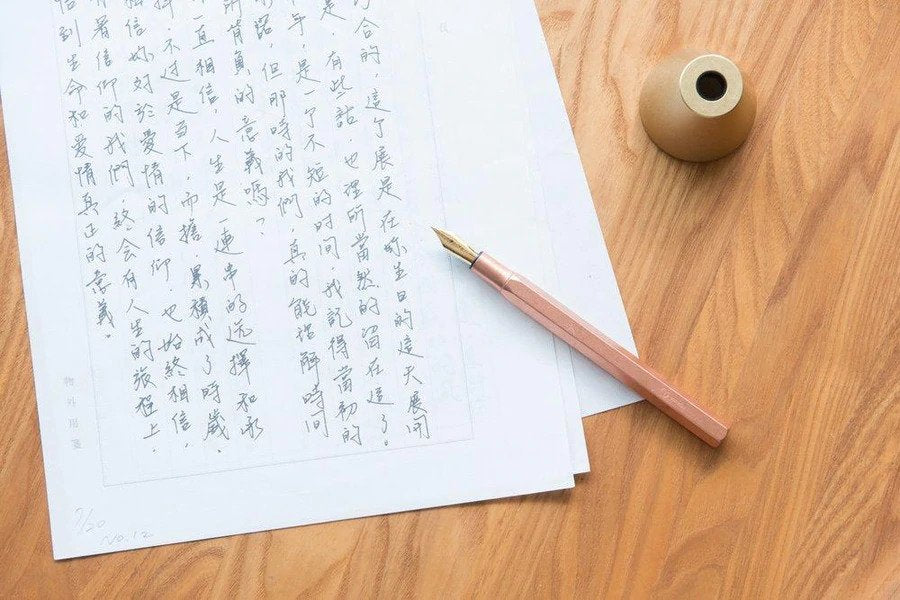 合的,這个展是在妳生日的這天展開
是,有些話,也理所當然的留在這了。
手,是一个不短的時間,我記得當初的
路,但那時的我們,真的能 解時間
背負的意義嗎?
一直相信,人生是一連串的选擇和承
擇,不過是 下,而 ,累積成了時歲。
相信妳 於愛情的信仰,也始終相信,
有著信仰的我們,終会有人生的旅程上,
悟到生命和愛情真正的意義。
物外用箋
7/20
No.12